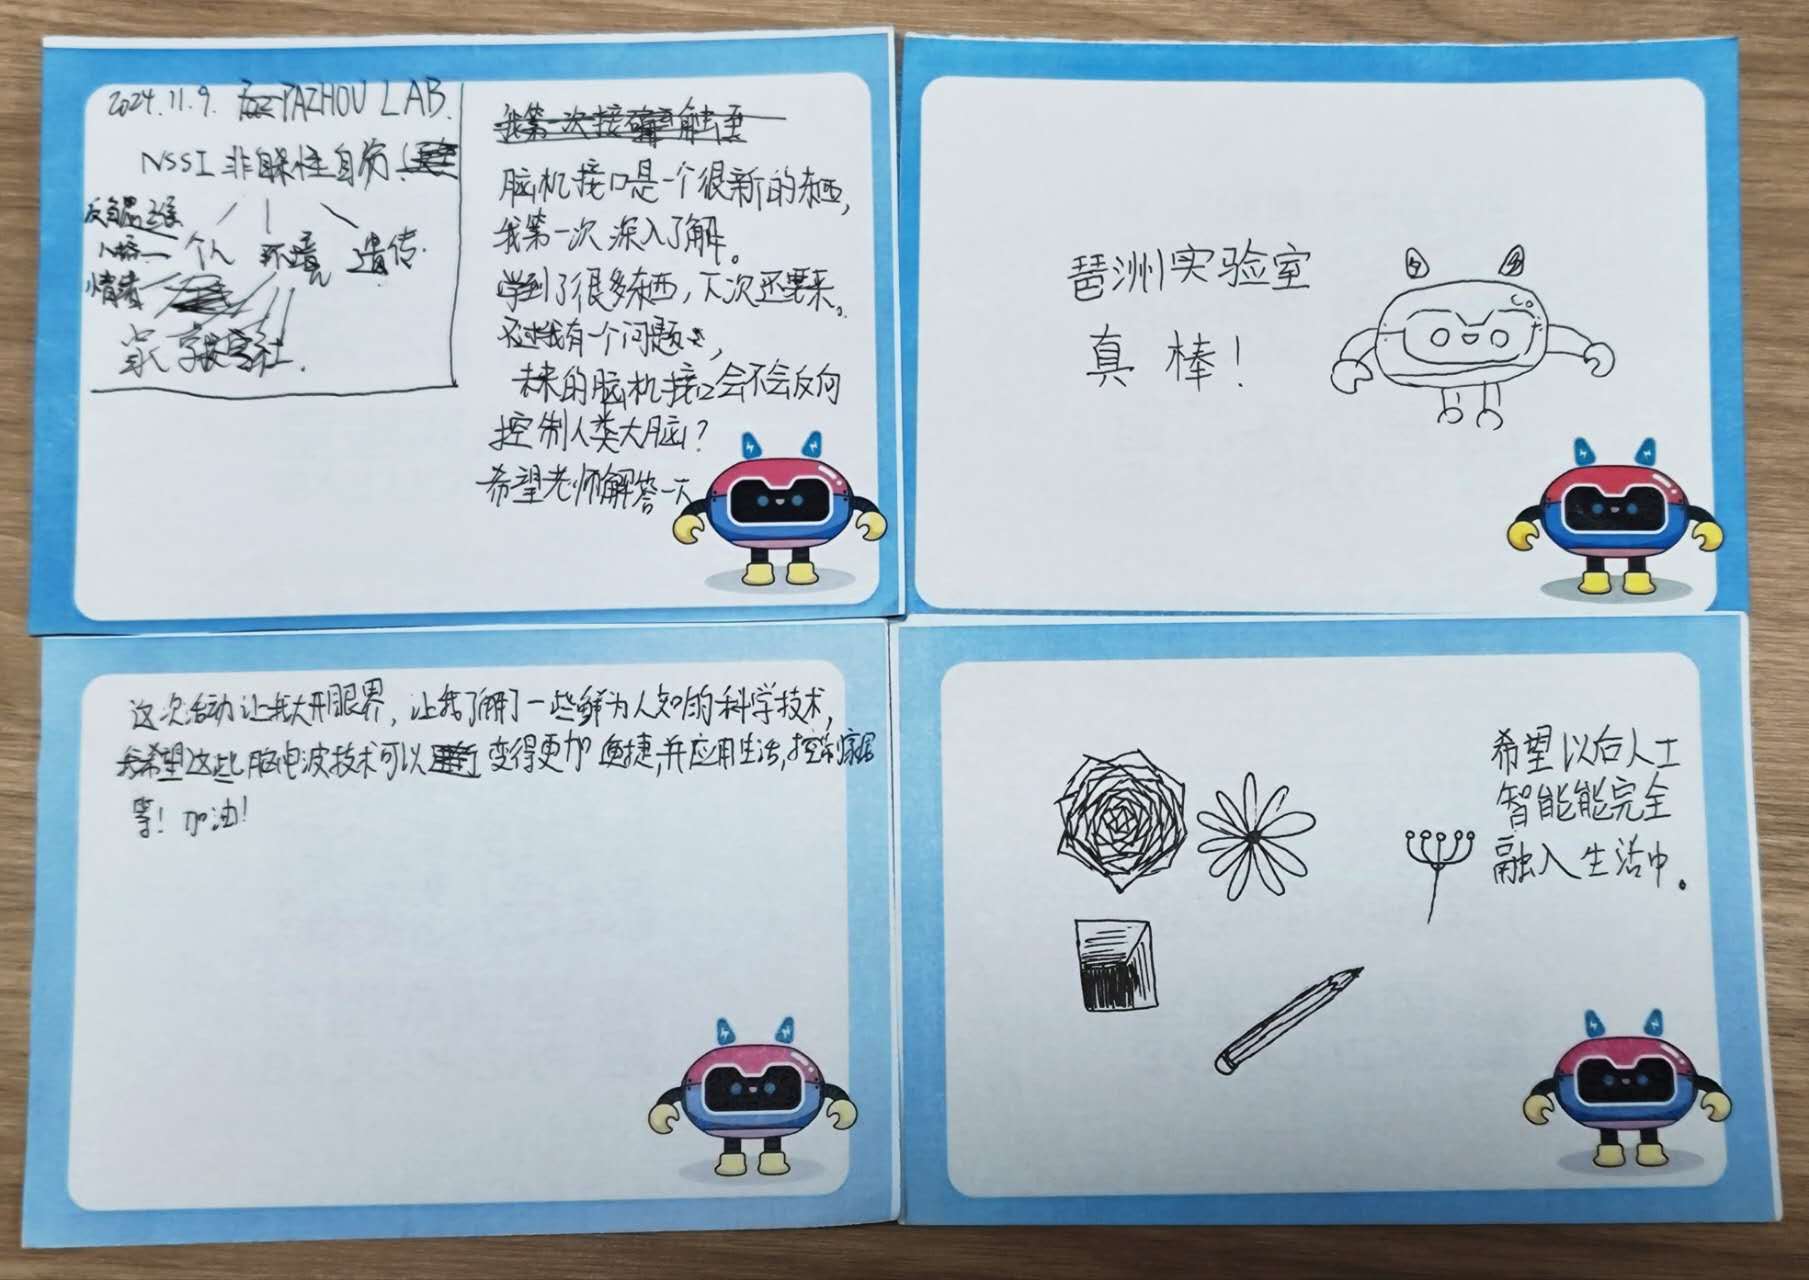 2024.11.9. 在PAZHOU LAB.
NSSI 非自杀性自伤
个人 环境 遗传.
情绪
家 学校 社.
我第一次接触
脑机接口是一个很新的东西,
我第一次深入了解。
学到了很多东西,下次还要来。
不过我有一个问题,
未来的脑机接口会不会反向
控制人类大脑?
希望老师解答一下
琶洲实验室
真棒!
这次活动让我大开眼界,让我了解了一些鲜为人知的科学技术,
我希望这些脑电波技术可以变得更加便捷,并应用生活,控制家居
等!加油!
希望以后人工
智能能完全
融入生活中。